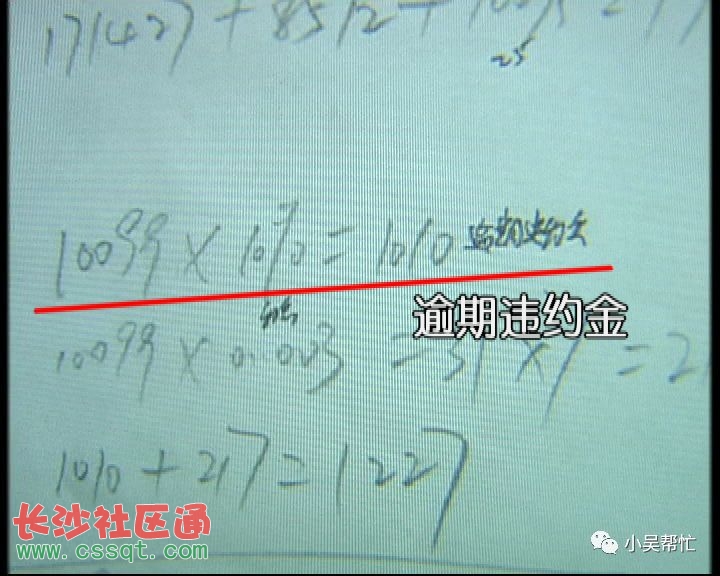 171427 + 8512 +
25
10099 × 10% = 1010 逾期违约金
逾期违约金
10099 × 0.003 = 31 × 7 = 2
1010 + 217 = 1227
长沙社区通
www.cssqt.com
小吴帮忙